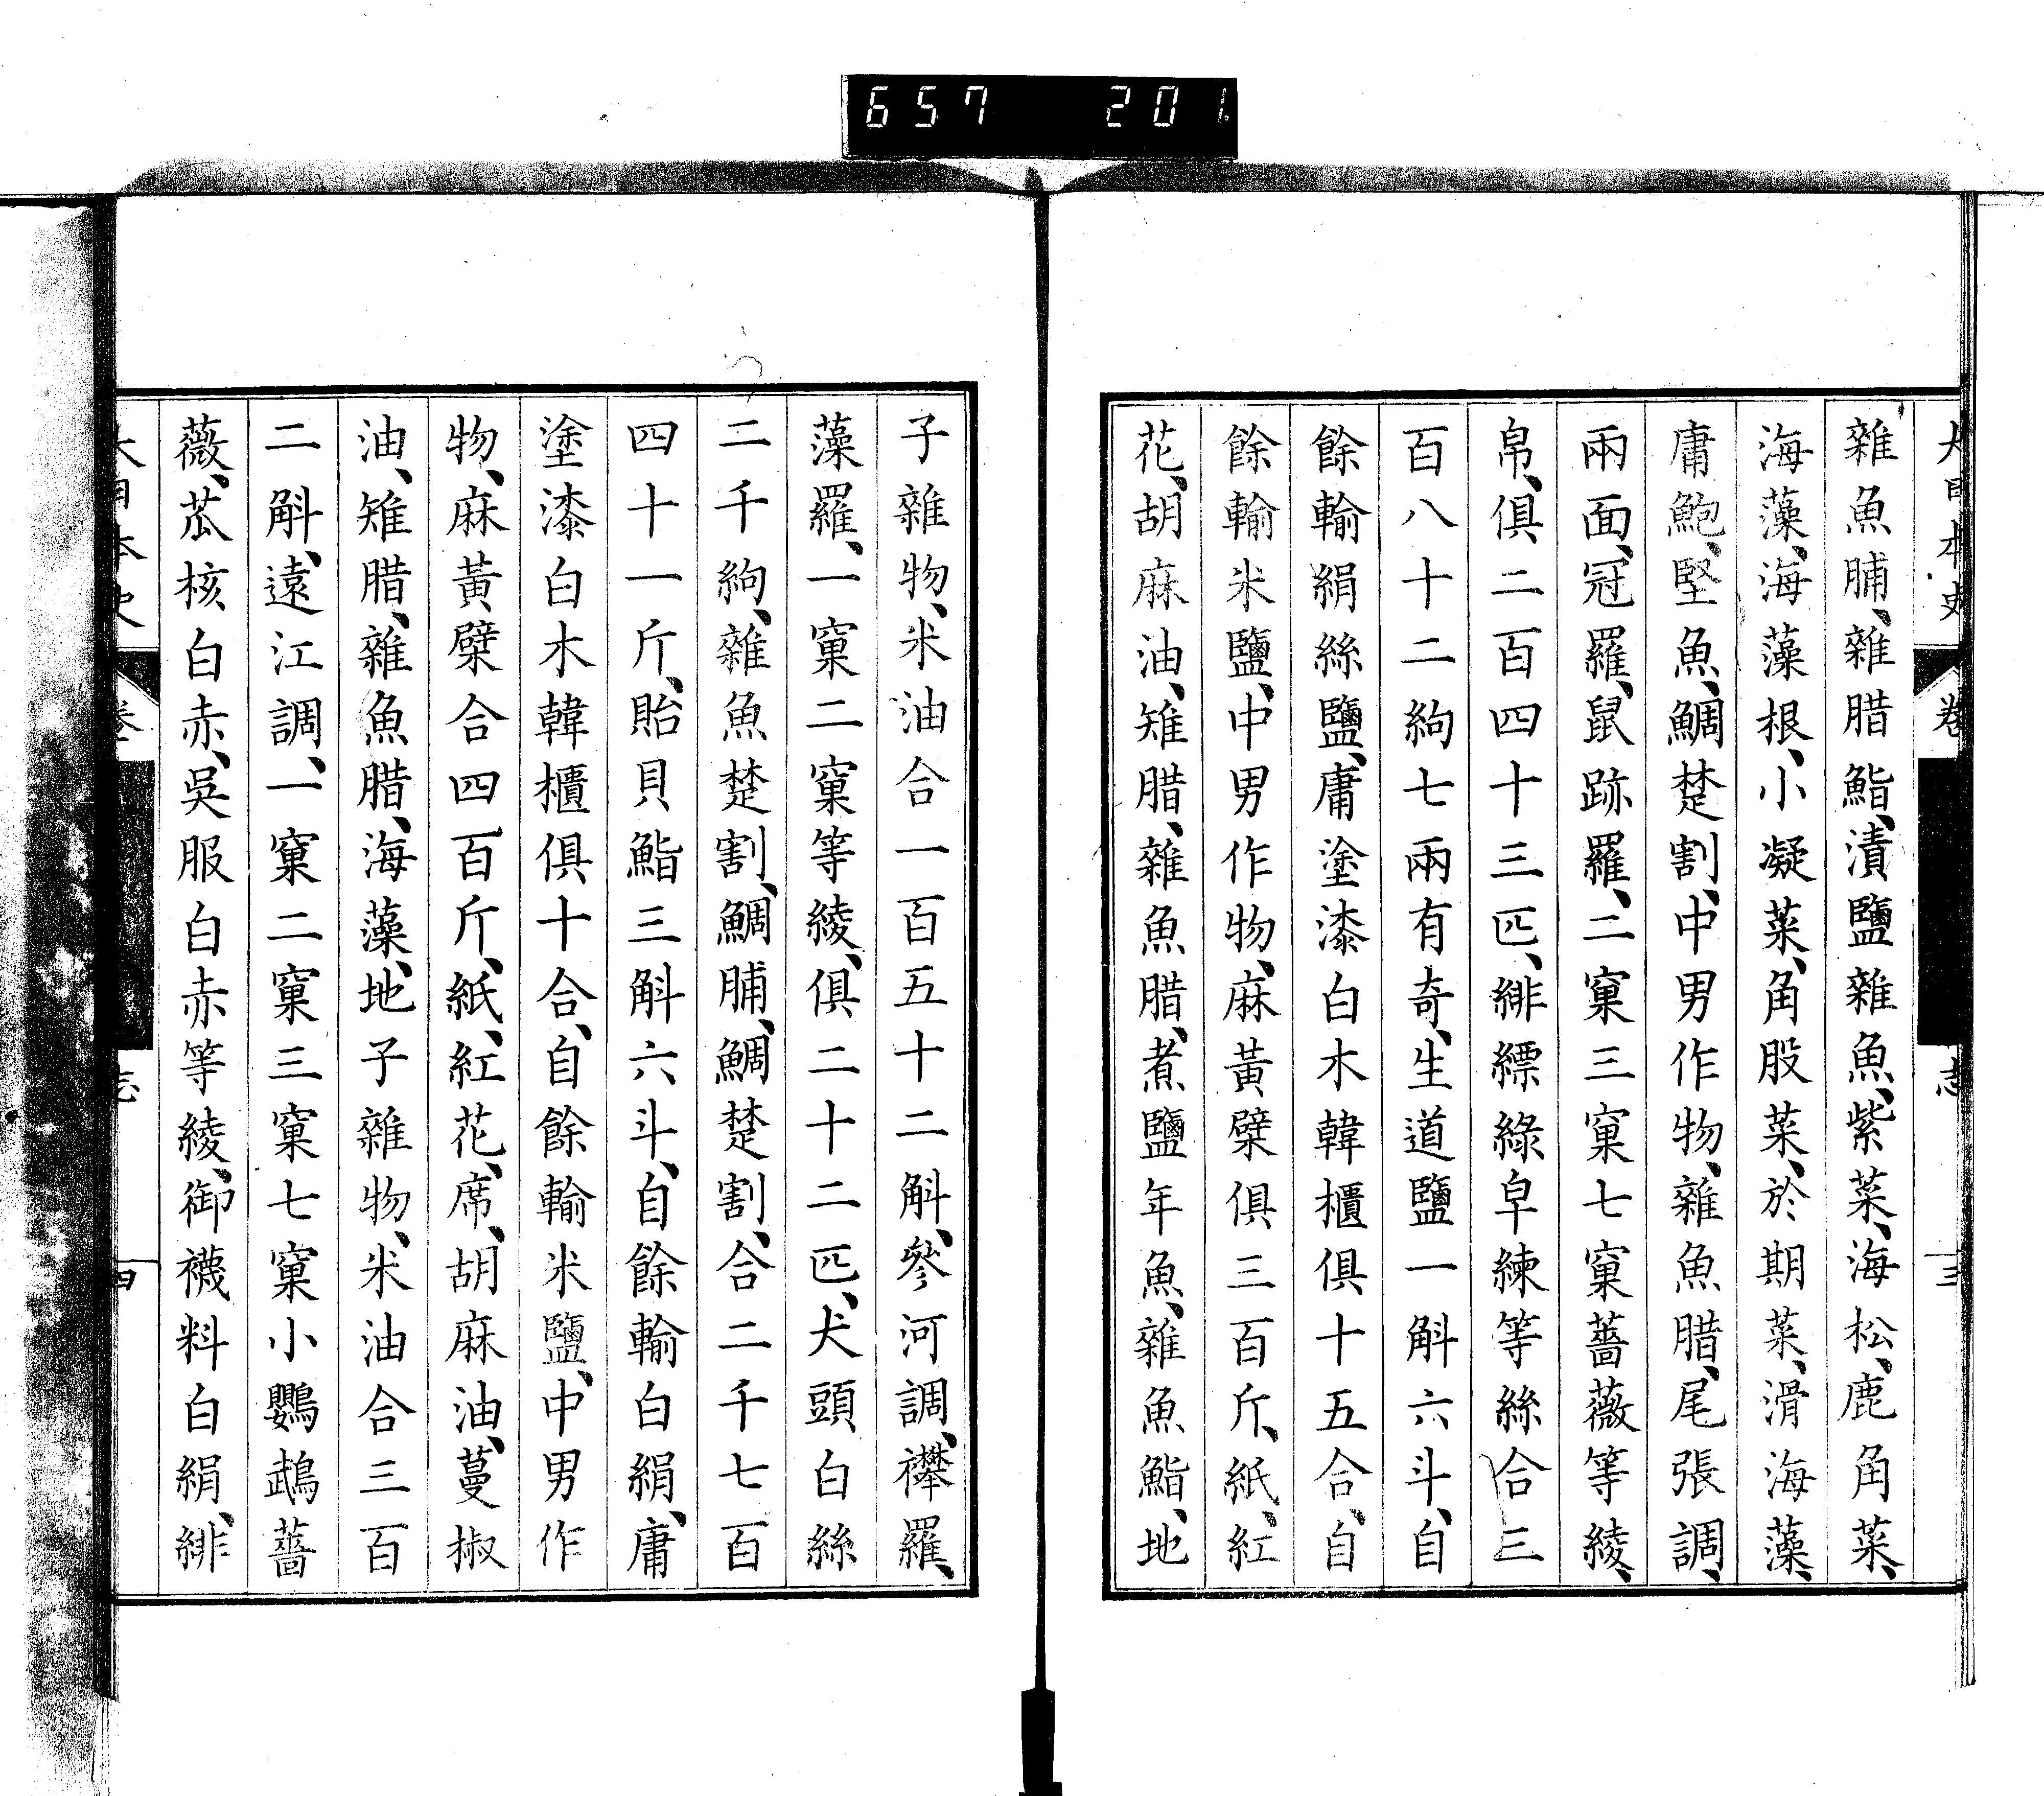 657 201
大日本史 卷 志 三
雜魚脯、雜腊鮨、漬鹽雜魚、紫菜、海松、鹿角菜、
海藻、海藻根、小凝菜、角股菜、於期菜、滑海藻、
庸鮑、堅魚、鯛楚割、中男作物、雜魚腊、尾張調、
兩面、冠羅、鼠跡羅、二窠三窠七窠薔薇等綾、
帛、俱二百四十三匹、緋縹綠皁練等絲合三
百八十二絇七兩有奇、生道鹽一斛六斗、自
餘輸絹絲鹽、庸塗漆白木韓櫃俱十五合、自
餘輸米鹽、中男作物、麻黃檗俱三百斤、紙、紅
花、胡麻油、雉腊、雜魚腊、煮鹽年魚、雜魚鮨、地
子雜物、米油合一百五十二斛、參河調、襷羅、
藻羅、一窠二窠等綾、俱二十二匹、犬頭白絲
二千絇、雜魚楚割、鯛脯、鯛楚割、合二千七百
四十一斤、貽貝鮨三斛六斗、自餘輸白絹、庸
塗漆白木韓櫃俱十合、自餘輸米鹽、中男作
物、麻黃檗合四百斤、紙、紅花、席、胡麻油、蔓椒
油、雉腊、雜魚腊、海藻、地子雜物、米油合三百
二斛、遠江調、一窠二窠三窠七窠小鸚鵡薔
薇、苽核白赤、吳服白赤等綾、御襪料白絹、緋
大日本史 卷 志 四